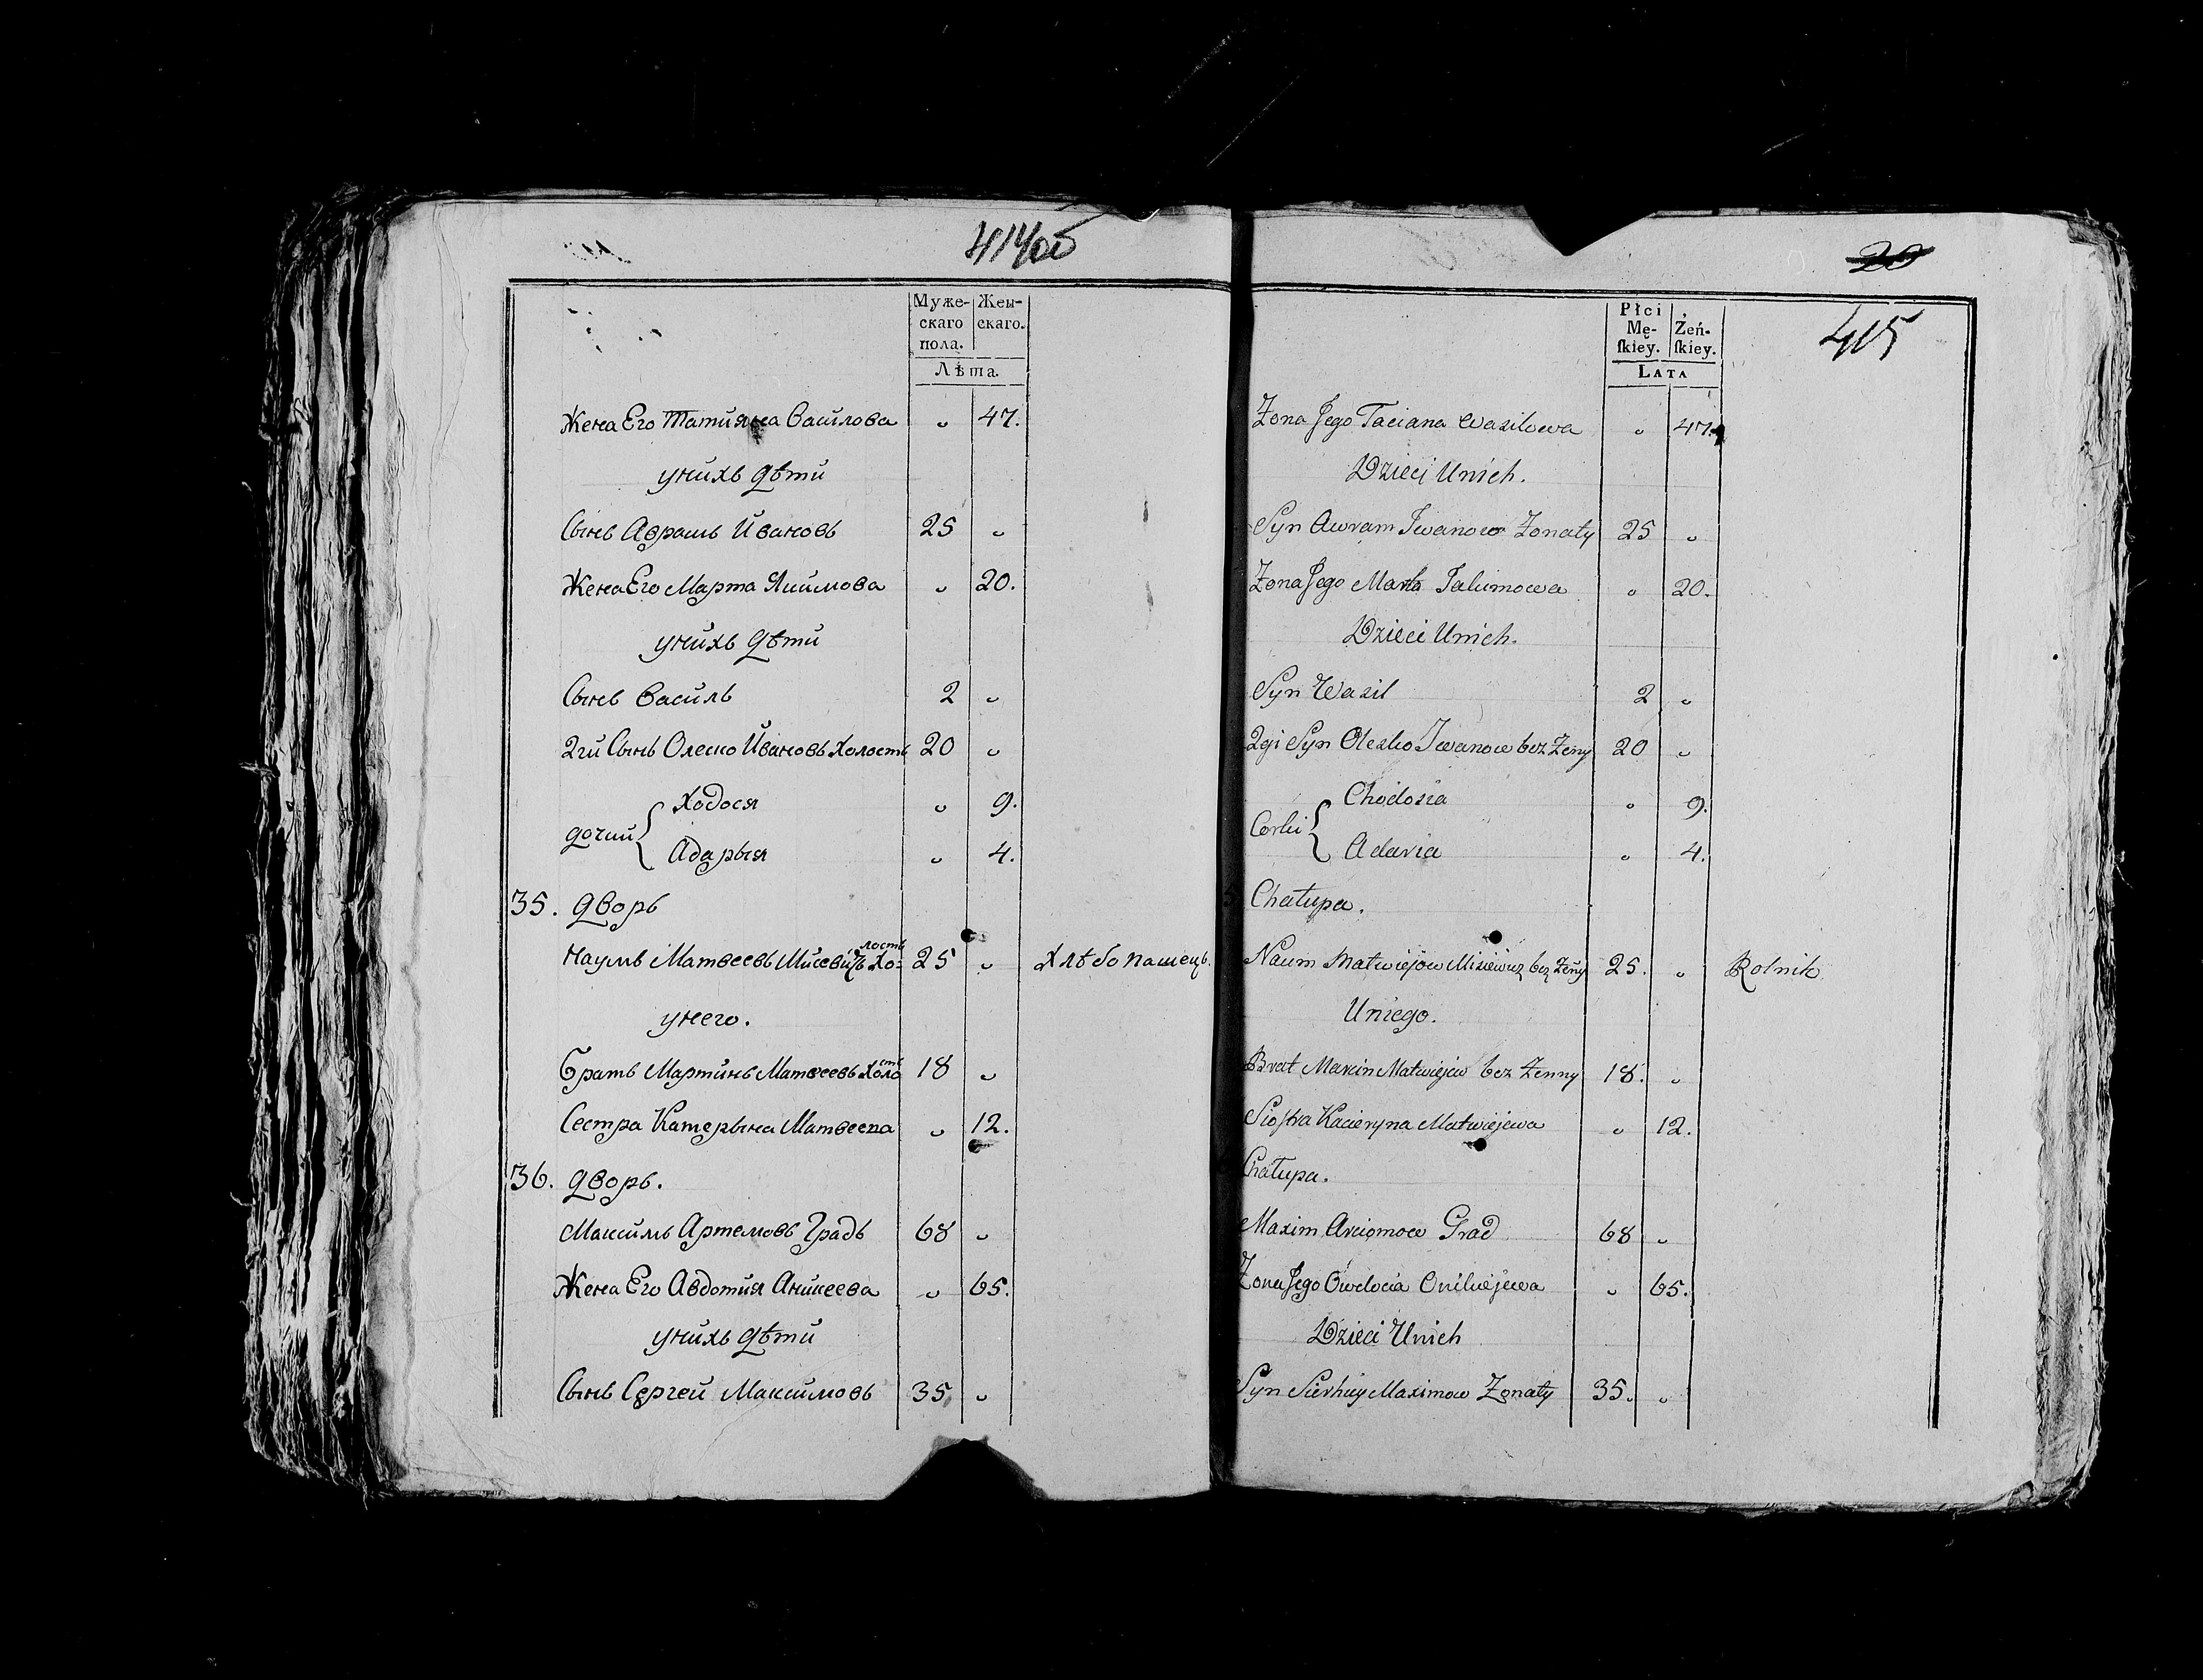 414об
Муже-
скаго
пола.
Жен-
скаго.
Лѣта.
Жена Его Татияна Василова " 47.
унихъ дѣти
Сынъ Аврамъ Ивановъ 25 "
Жена Его Марта Якимова " 20.
унихъ дѣти
Сынъ Василь 2 "
2гй Сынъ Олеско Ивановъ Холостъ 20 "
дочки { Ходося " 9.
Адарыя " 4.
35. дворъ
Наумъ Матвеевъ Мисевичъ Холостъ 25 " Хлѣбопашецъ.
унего.
Братъ Мартинъ Матвеевъ Холостъ 18 "
Сестра Катерына Матвеева " 12.
36. дворъ.
Максимъ Артемовъ Градъ 68 "
Жена Его Авдотия Аникеева " 65.
унихъ дѣти
Сынъ Сергей Максимовъ 35 "
20
415
Płci
Mę-
ſkiey.
Żeń-
ſkiey.
LATA
Zona Jego Taciana Wasilowa " 47.
Dzieci Unich.
Syn Awram Iwanow Zonaty 25 "
Zona Jego Marta Jakimowa " 20.
Dzieci Unich.
Syn Wasil 2 "
2gi Syn Olesko Iwanow bez Zeny 20 "
Corki { Chodosia " 9.
Adaria " 4.
5 Chałupa.
Naum Matwiejow Misiewicz bez Zeny 25. " Rolnik
Uniego.
Brat Marcin Matwiejew bez Zenny 18. "
Siostra Kacieryna Matwiejewa " 12.
Chałupa.
Maxim Arciomow Grad 68 "
Zona Jego Owdocia Onikiejewa " 65.
Dzieci Unich
Syn Sierhiey Maximow Zonaty 35. "